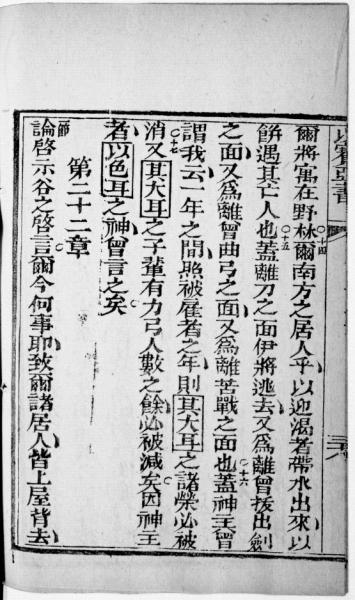 爾將寓在野林爾南方之居人乎以迎渴者帶水出來以
餅遇其亡人也蓋離刀之面伊將逃去又爲離曾拔出劍
之面又爲離曾曲弓之面又爲離苦戰之面也蓋神主曾
謂我云一年之間照被雇者之年則其大耳之諸榮必被
消又其大耳之子輩有力弓人數之餘必被減矣因神主
者以色耳之神曾言之矣
第二十二章
論啓示谷之啓言爾今何事耶致爾諸居人皆上屋背去
節
○十四
○十五
○十六
○十七